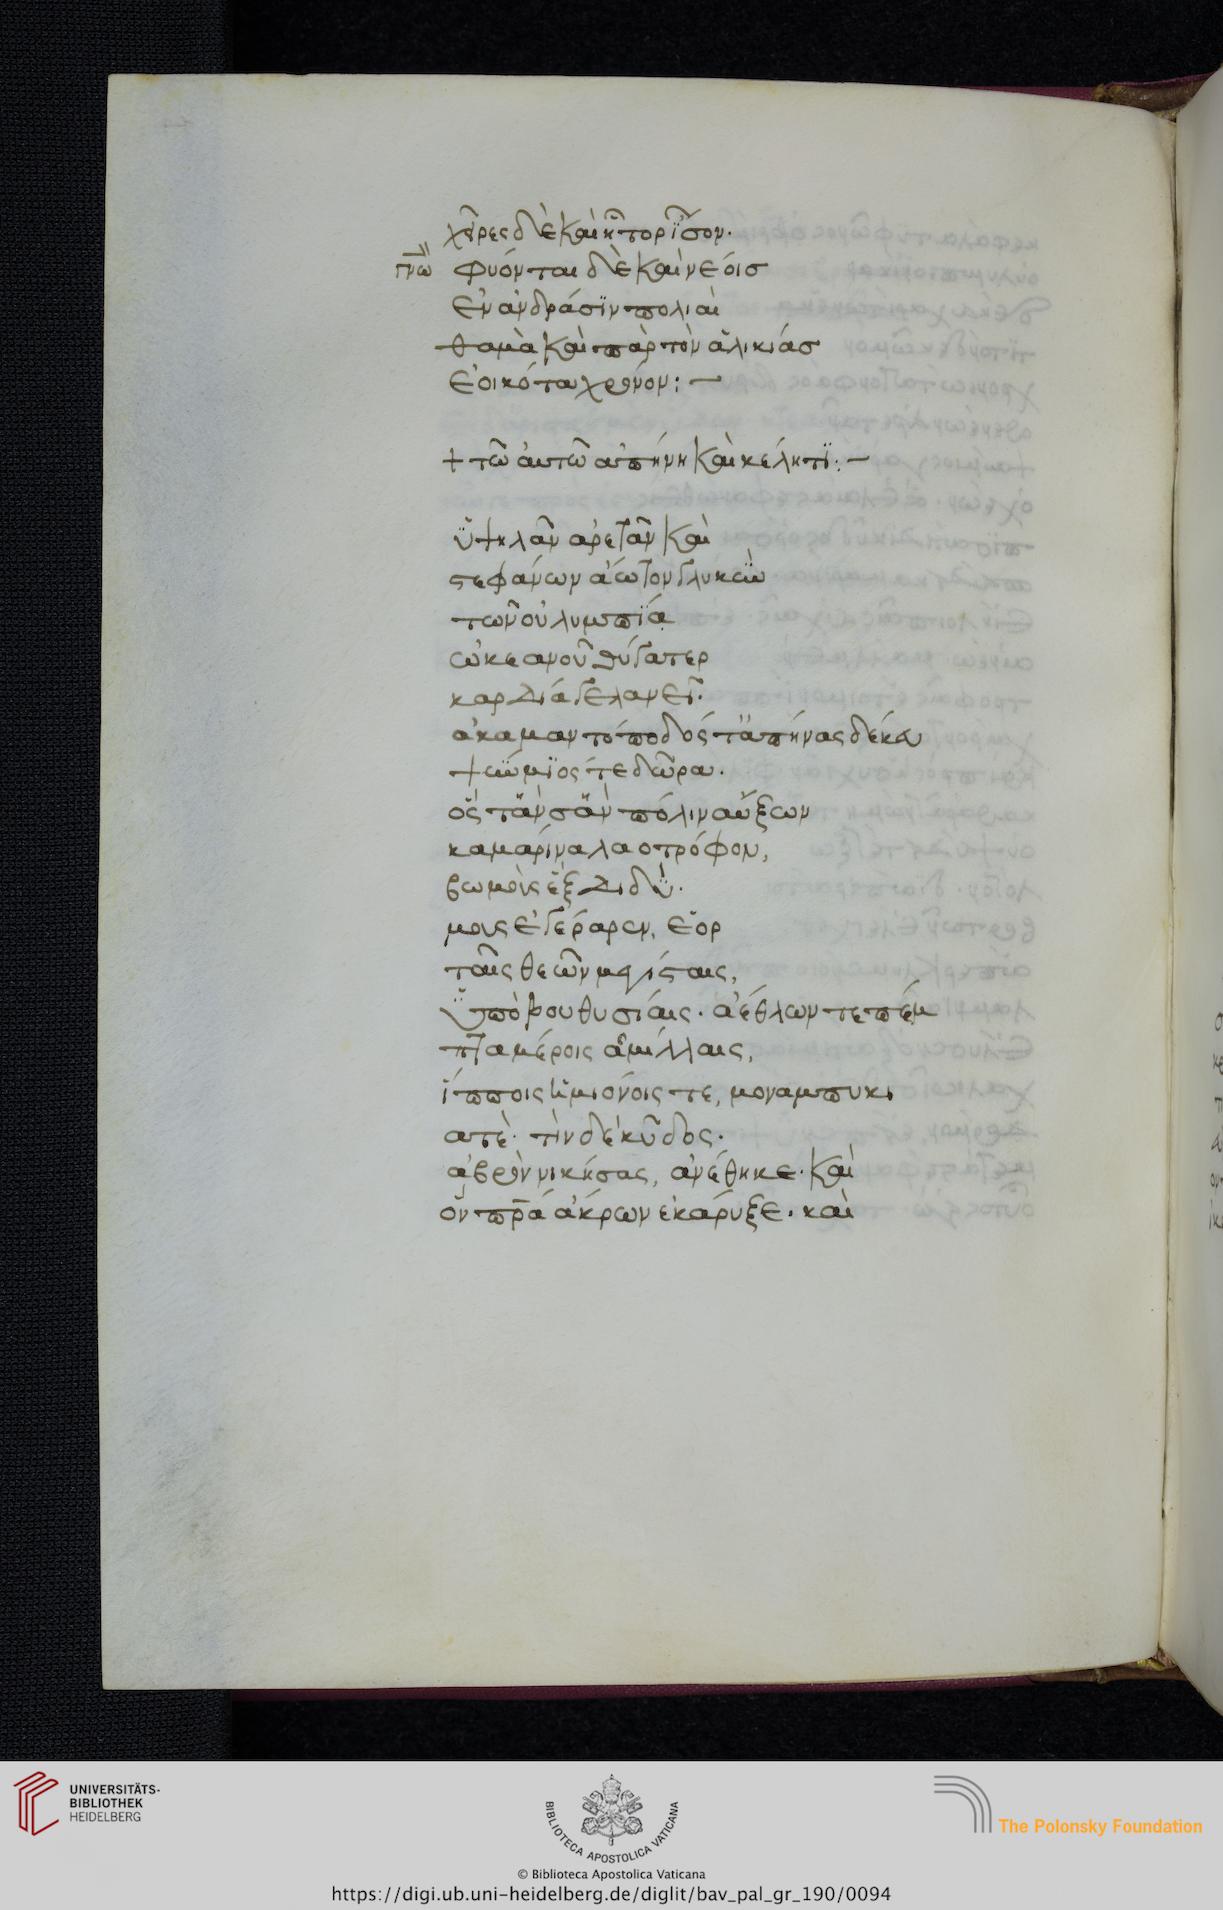 χεῖρες δὲ καὶ ἦτορ ἴσον.
γνω φυόνται δὲ καὶ νεόισ
ἐν ἀνδράσϊν πολιαὶ
θαμὰ καὶ παρ τὸν ἁλικίασ
ἐοικότα χρόνον: —
+ τῶ ἀυτῶ ἀπήνη καὶ κέλητϊ: —
ὑψηλᾶν ἀρετᾶν καὶ
στεφάνων ἄωτον γλυκὺ
τῶν οὐλυμπϊα
ὠκεανοῦ θύγατερ
καρδία γελανεῖ.
ἀκαμαντόποδός τ' ἀπήνας δέκευ
ψαύμϊός τε δῶρα.
ὃς τὰν σὰν πόλιν αὔξων
καμαρίνα λαοτρόφον,
βωμοὺς ἓξ διδύ.
μους ἐγέραρεν, ἑορ
ταῖς θεῶν μεγίσταις,
ὑπὸ βουθυσίαις. ἀέθλων τε πέμ
πταμέροις ἁμίλλαις,
ἵπποις ἡμιόνοις τε, μοναμπυκι
ατὲ. τὶν δὲ κῦδος.
ἁβρὸν νικήσας, ἀνέθηκε. καὶ
ὃν πρα ἄκρων ἐκάρυξε. καὶ
UNIVERSITÄTS-
BIBLIOTHEK
HEIDELBERG
BIBLIOTECA APOSTOLICA VATICANA
The Polonsky Foundation
© Biblioteca Apostolica Vaticana
https://digi.ub.uni-heidelberg.de/diglit/bav_pal_gr_190/0094